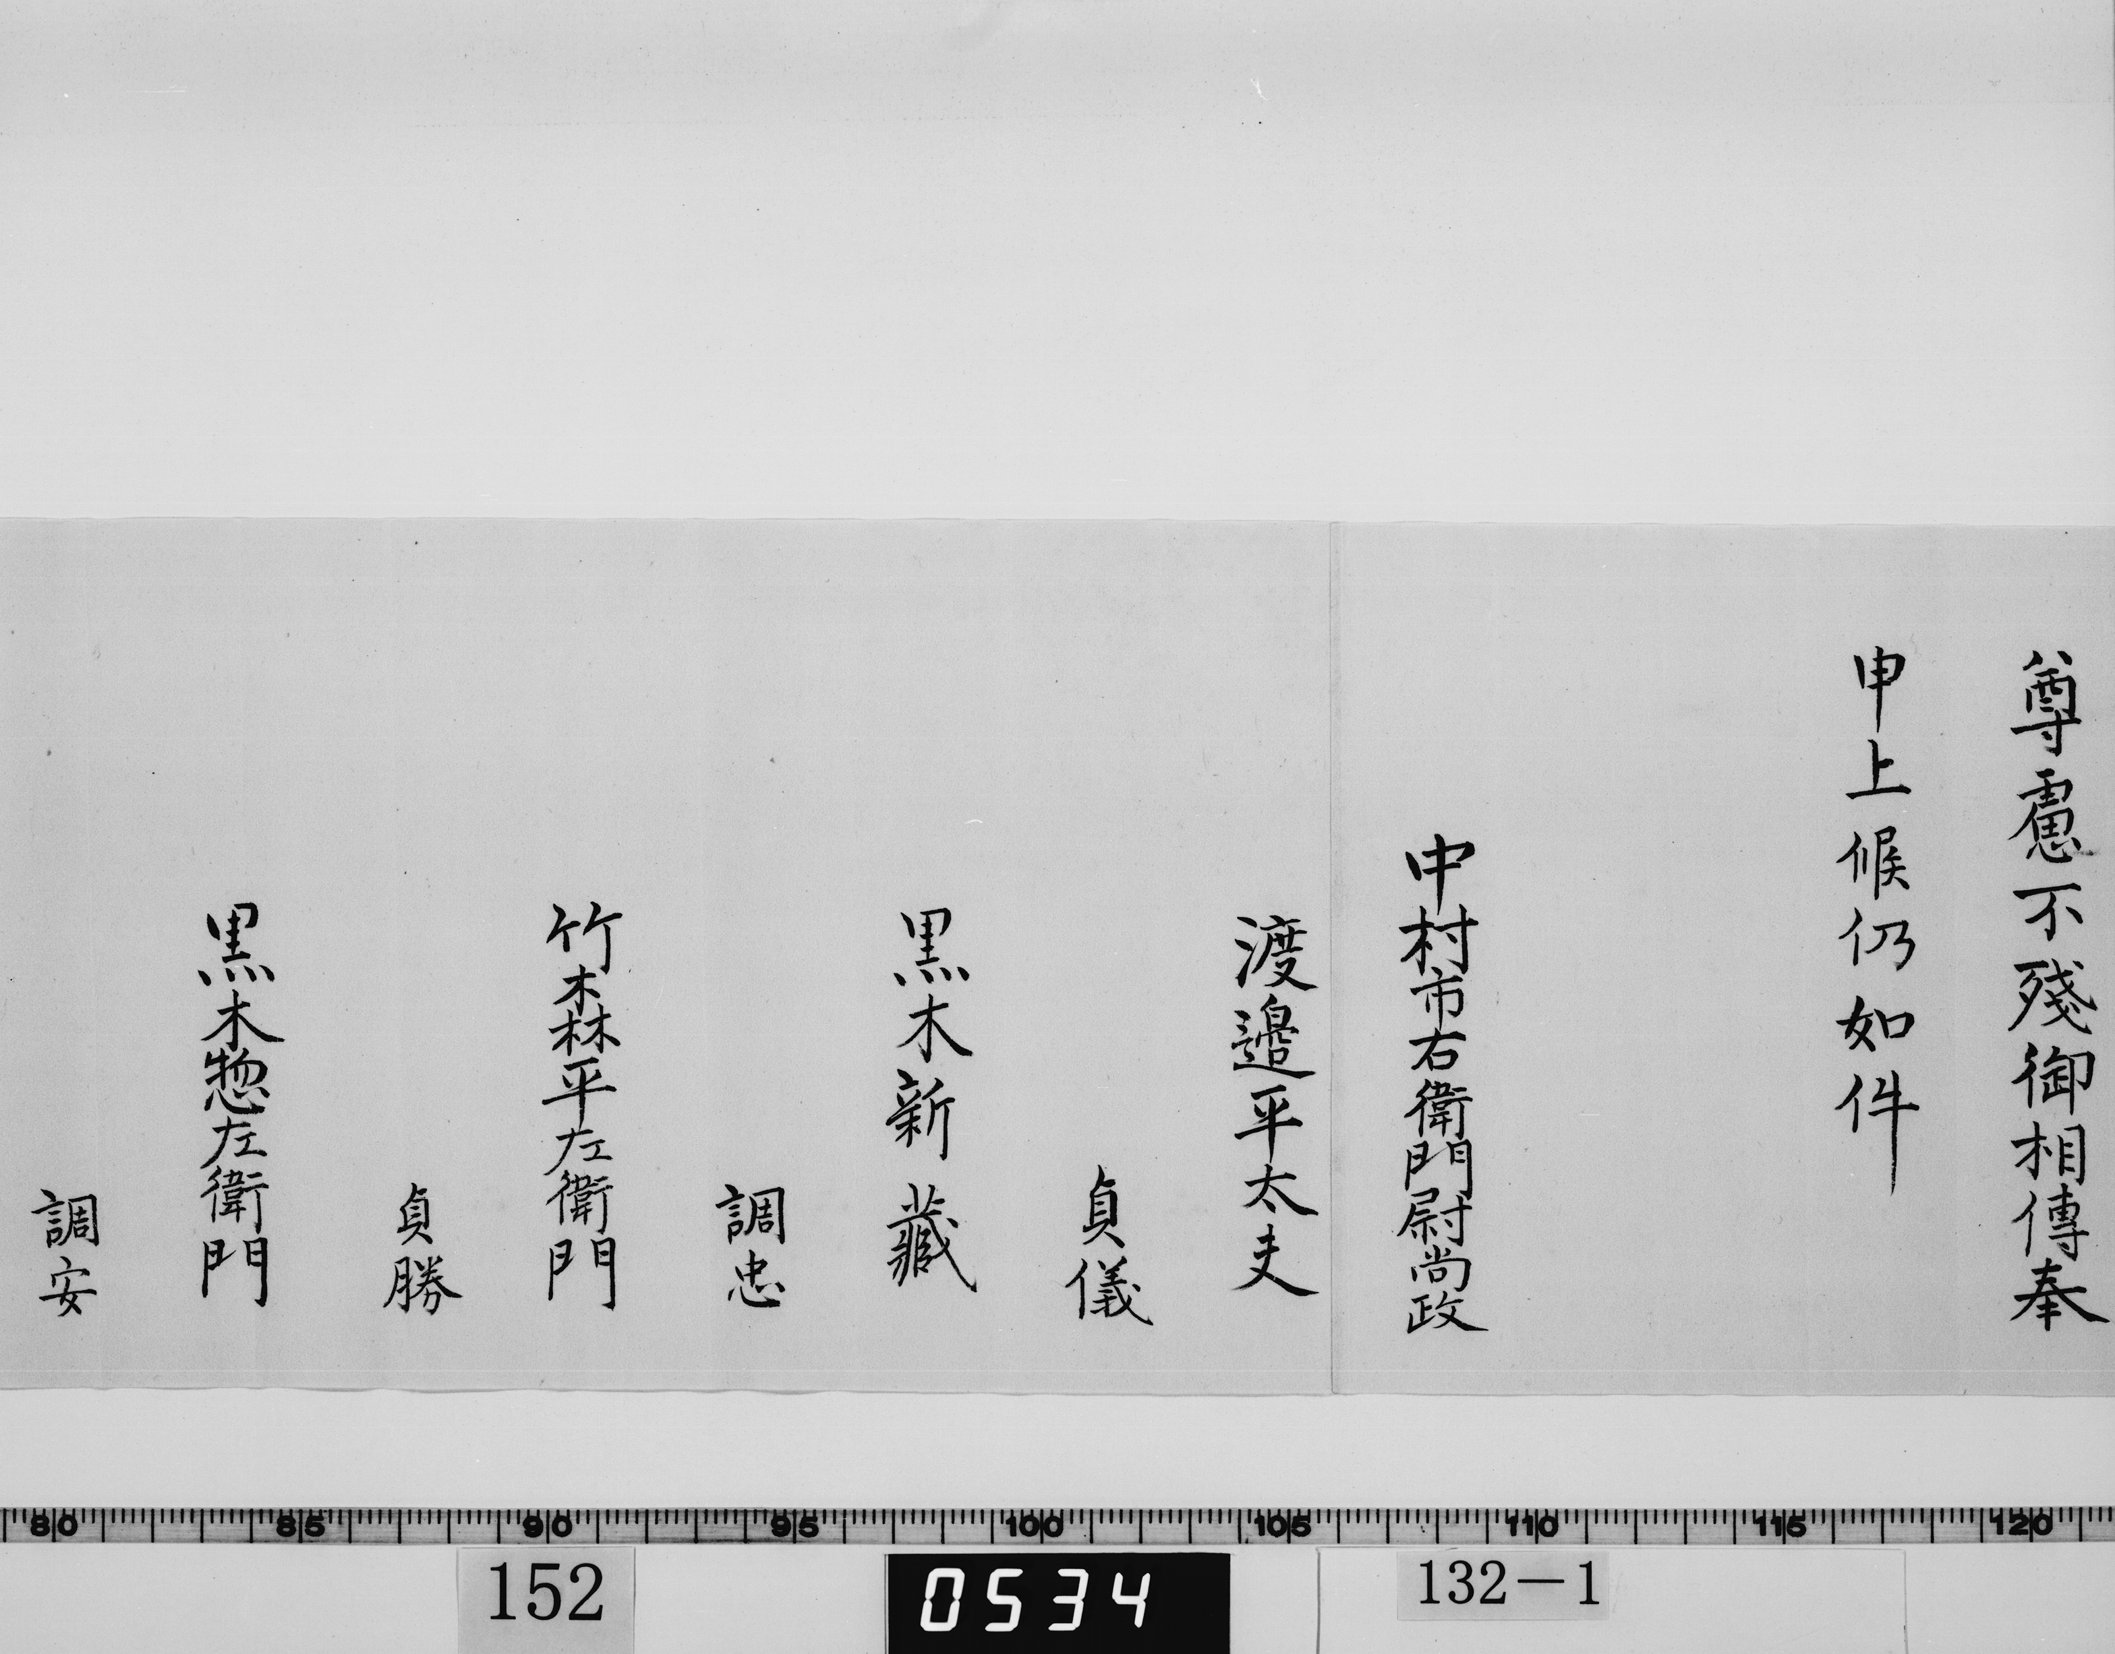 尊慮不殘御相傳奉
申上候仍如件
中村市右衛門尉尚政
渡邉平太夫
貞儀
黒木新藏
調忠
竹森平左衛門
貞勝
黒木惣左衛門
調安
80 85 90 95 100 105 110 115 120
152
0534
132-1